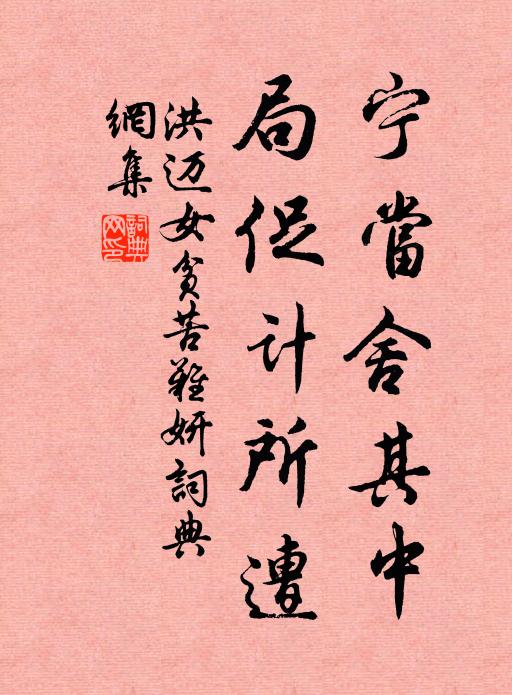 宁當舍其中
局促计所遭
洪迈女贫苦難妍詞典
網集
詞典網印